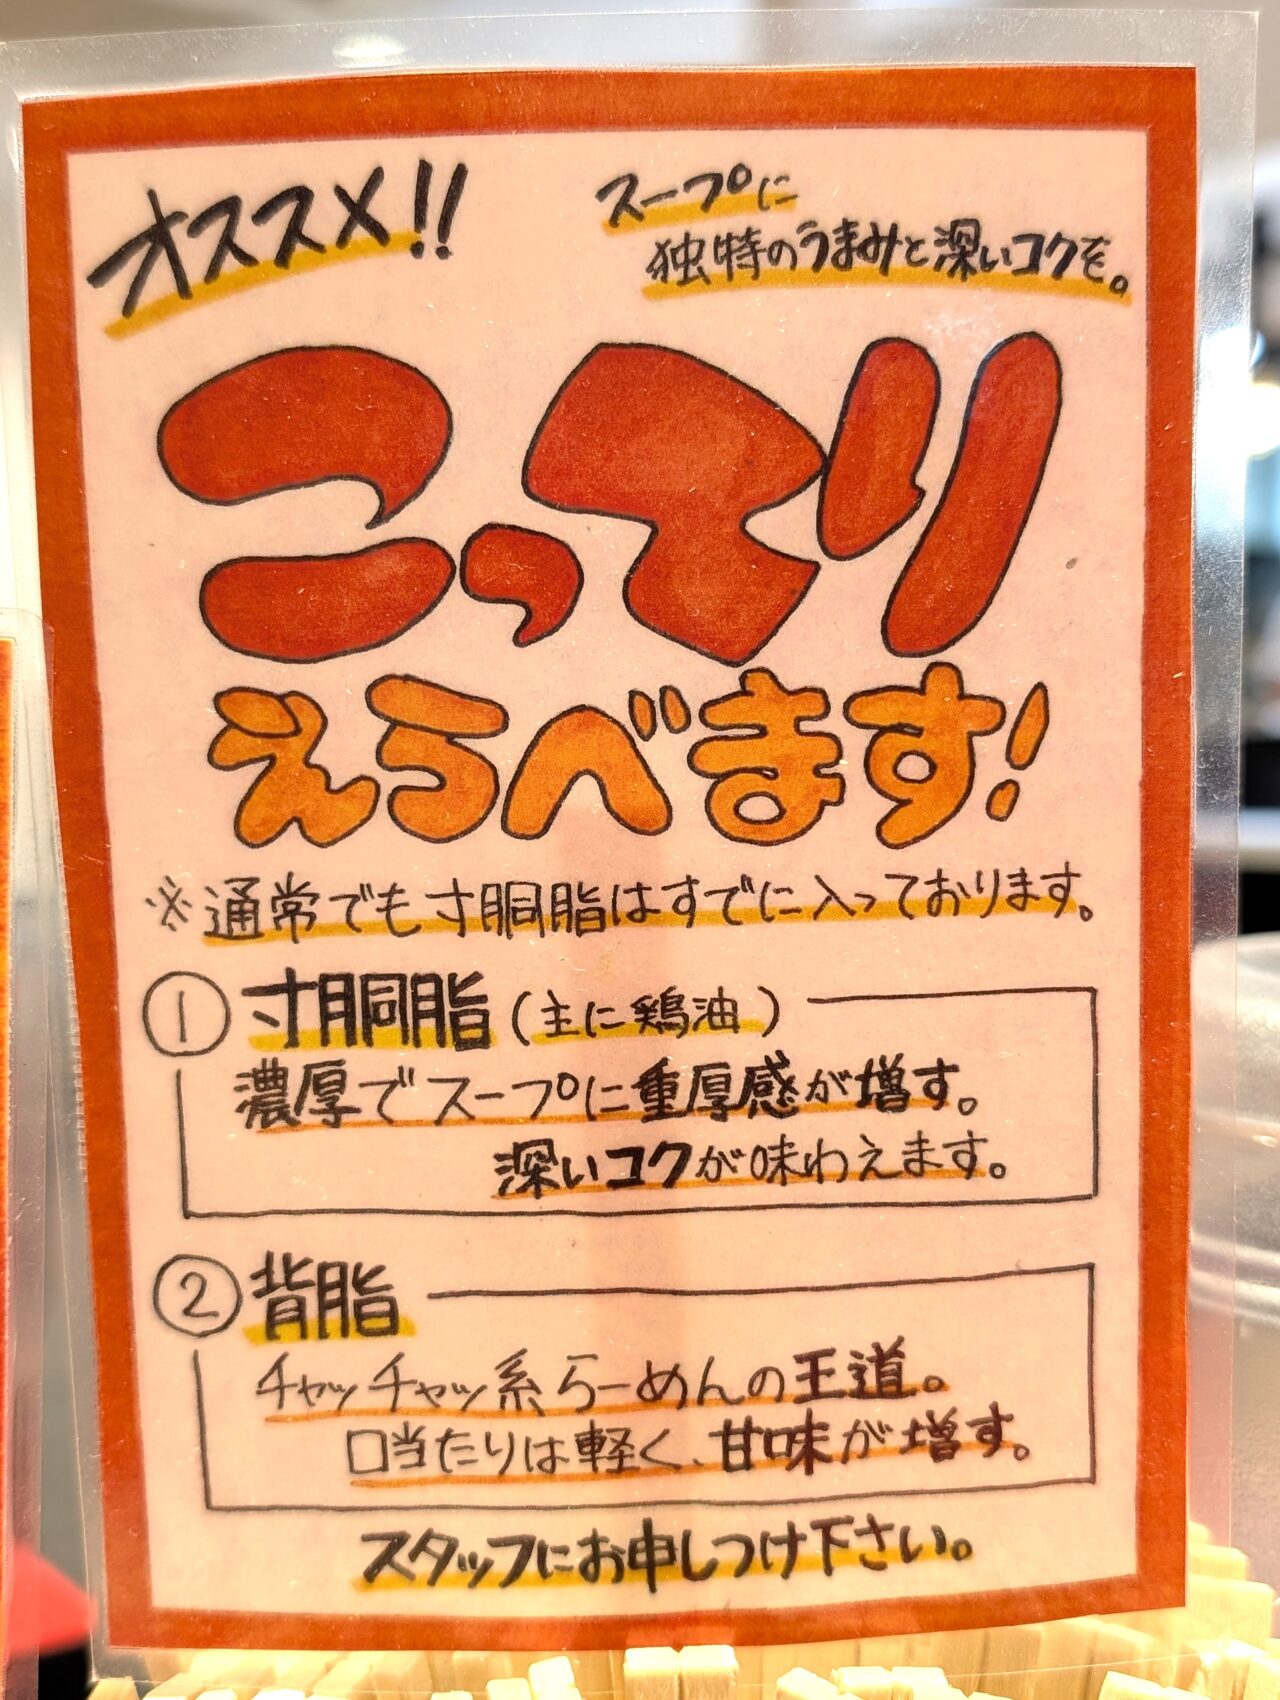 オススメ!!
スープに
独特のうまみと深いコクを。
こってり
えらべます!
※通常でも寸胴脂はすでに入っております。
① 寸胴脂(主に鶏油)
濃厚でスープに重厚感が増す。
深いコクが味わえます。
② 背脂
チャッチャッ系らーめんの王道。
口当たりは軽く、甘味が増す。
スタッフにお申しつけ下さい。